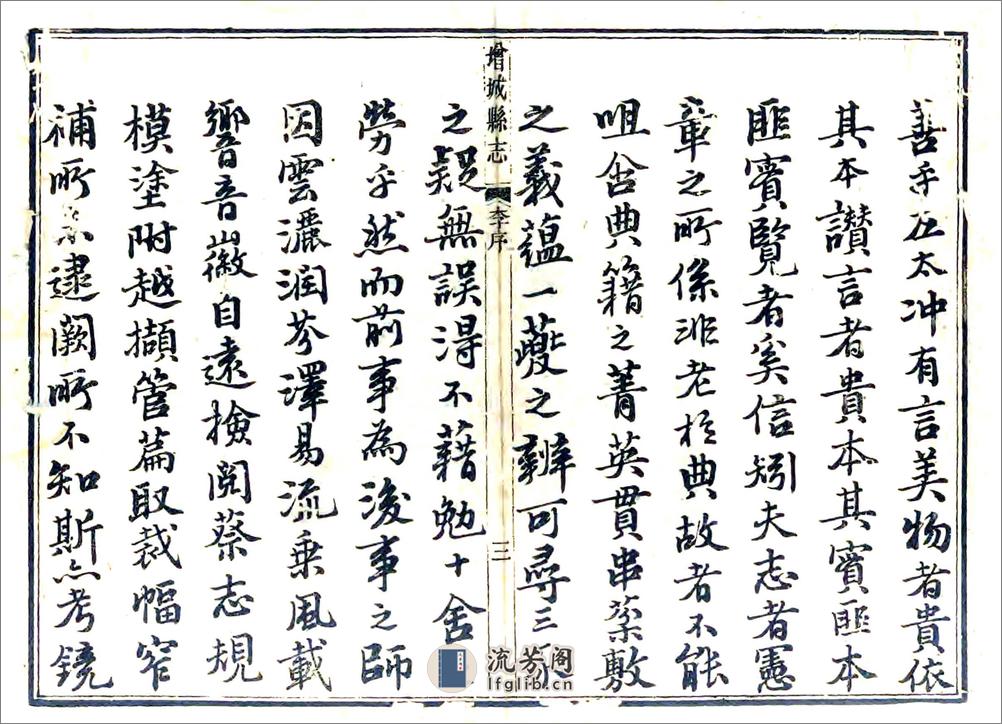 善乎左太冲有言美物者貴依
其本讃言者貴本其實匪本
匪實覽者奚信矧夫志者憲
章之所係非老於典故者不能
咀含典籍之菁英貫串敷
之義蘊一夔之辨可尋三豕
增城縣志 李序 三
之疑無誤淂不藉勉十舍
勞乎然而前事為後事之師
因雲灑润芬澤易流乗風載
響音徽自遠撿閱蔡志規
模塗附越擷管篇取裁幅窄
補所未逮闕所不知斯亦考鏡
流芳阁
lfglib.cn